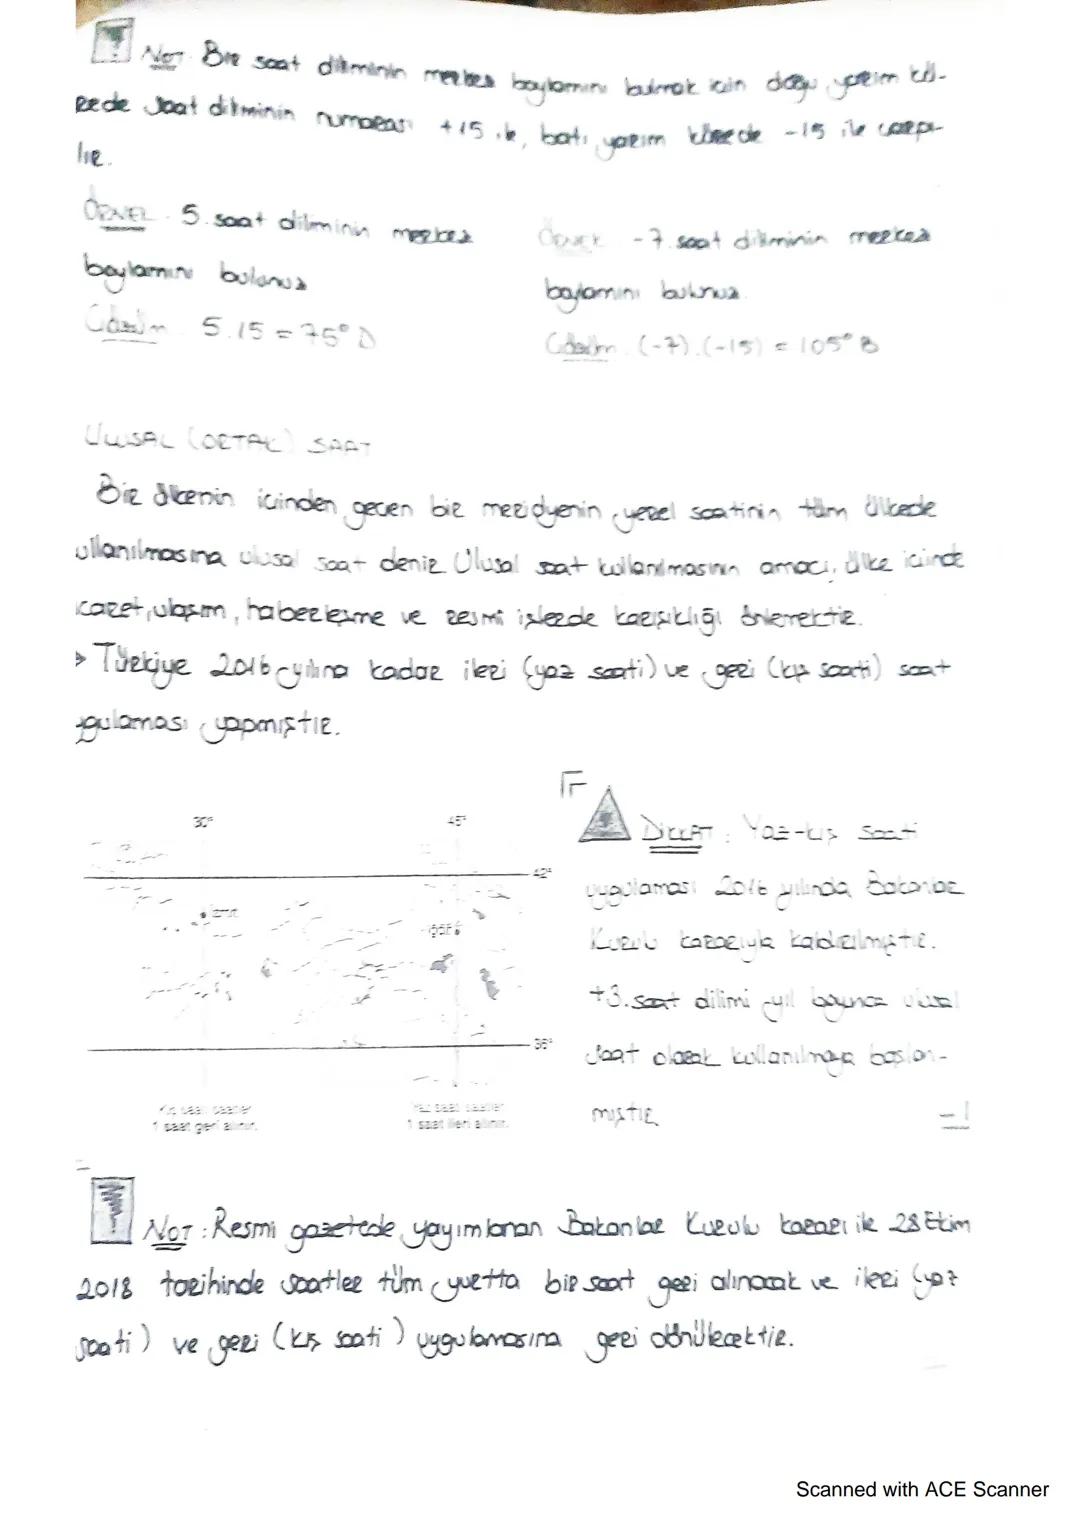 NOT: Bir saat diliminin merkez boylamını bulmak için doğu yarım kü-
rede saat diliminin numarası +15 ile, batı yarım kürede -15 ile çarpı-
lır.
ÖRNEK: 5. saat diliminin merkez
boylamını bulunuz
Çözüm: 5.15 = 75° D
ÖRNEK: -7. saat diliminin merkez
boylamını bulunuz.
Çözüm: (-7).(-15) = 105° B
ULUSAL (ORTAK) SAAT
Bir ülkenin içinden geçen bir meridyenin yerel saatinin tüm ülkede
ullanılmasına ulusal saat denir. Ulusal saat kullanılmasının amacı, ülke içinde
icaret, ulaşım, haberleşme ve resmi işlerde karışıklığı önlemektir.
Türkiye 2016 yılına kadar ileri (yaz saati) ve geri (kış saati) saat
ygulaması yapmıştır.
30° 45°
42°
İzmit
Iğdır
36°
Kış saati saatler
1 saat geri alınır.
Yaz saati saatler
1 saat ileri alınır.
DİKKAT: Yaz-kış saati
uygulaması 2016 yılında Bakanlar
Kurulu kararıyla kaldırılmıştır.
+3. saat dilimi yıl boyunca ulusal
saat olarak kullanılmaya başlan-
mıştır
NOT: Resmi gazetede yayımlanan Bakanlar Kurulu kararı ile 28 Ekim
2018 tarihinde saatler tüm yurtta bir saat geri alınacak ve ileri (yaz
saati) ve geri (kış saati) uygulamasına geri dönülecektir.
Scanned with ACE Scanner